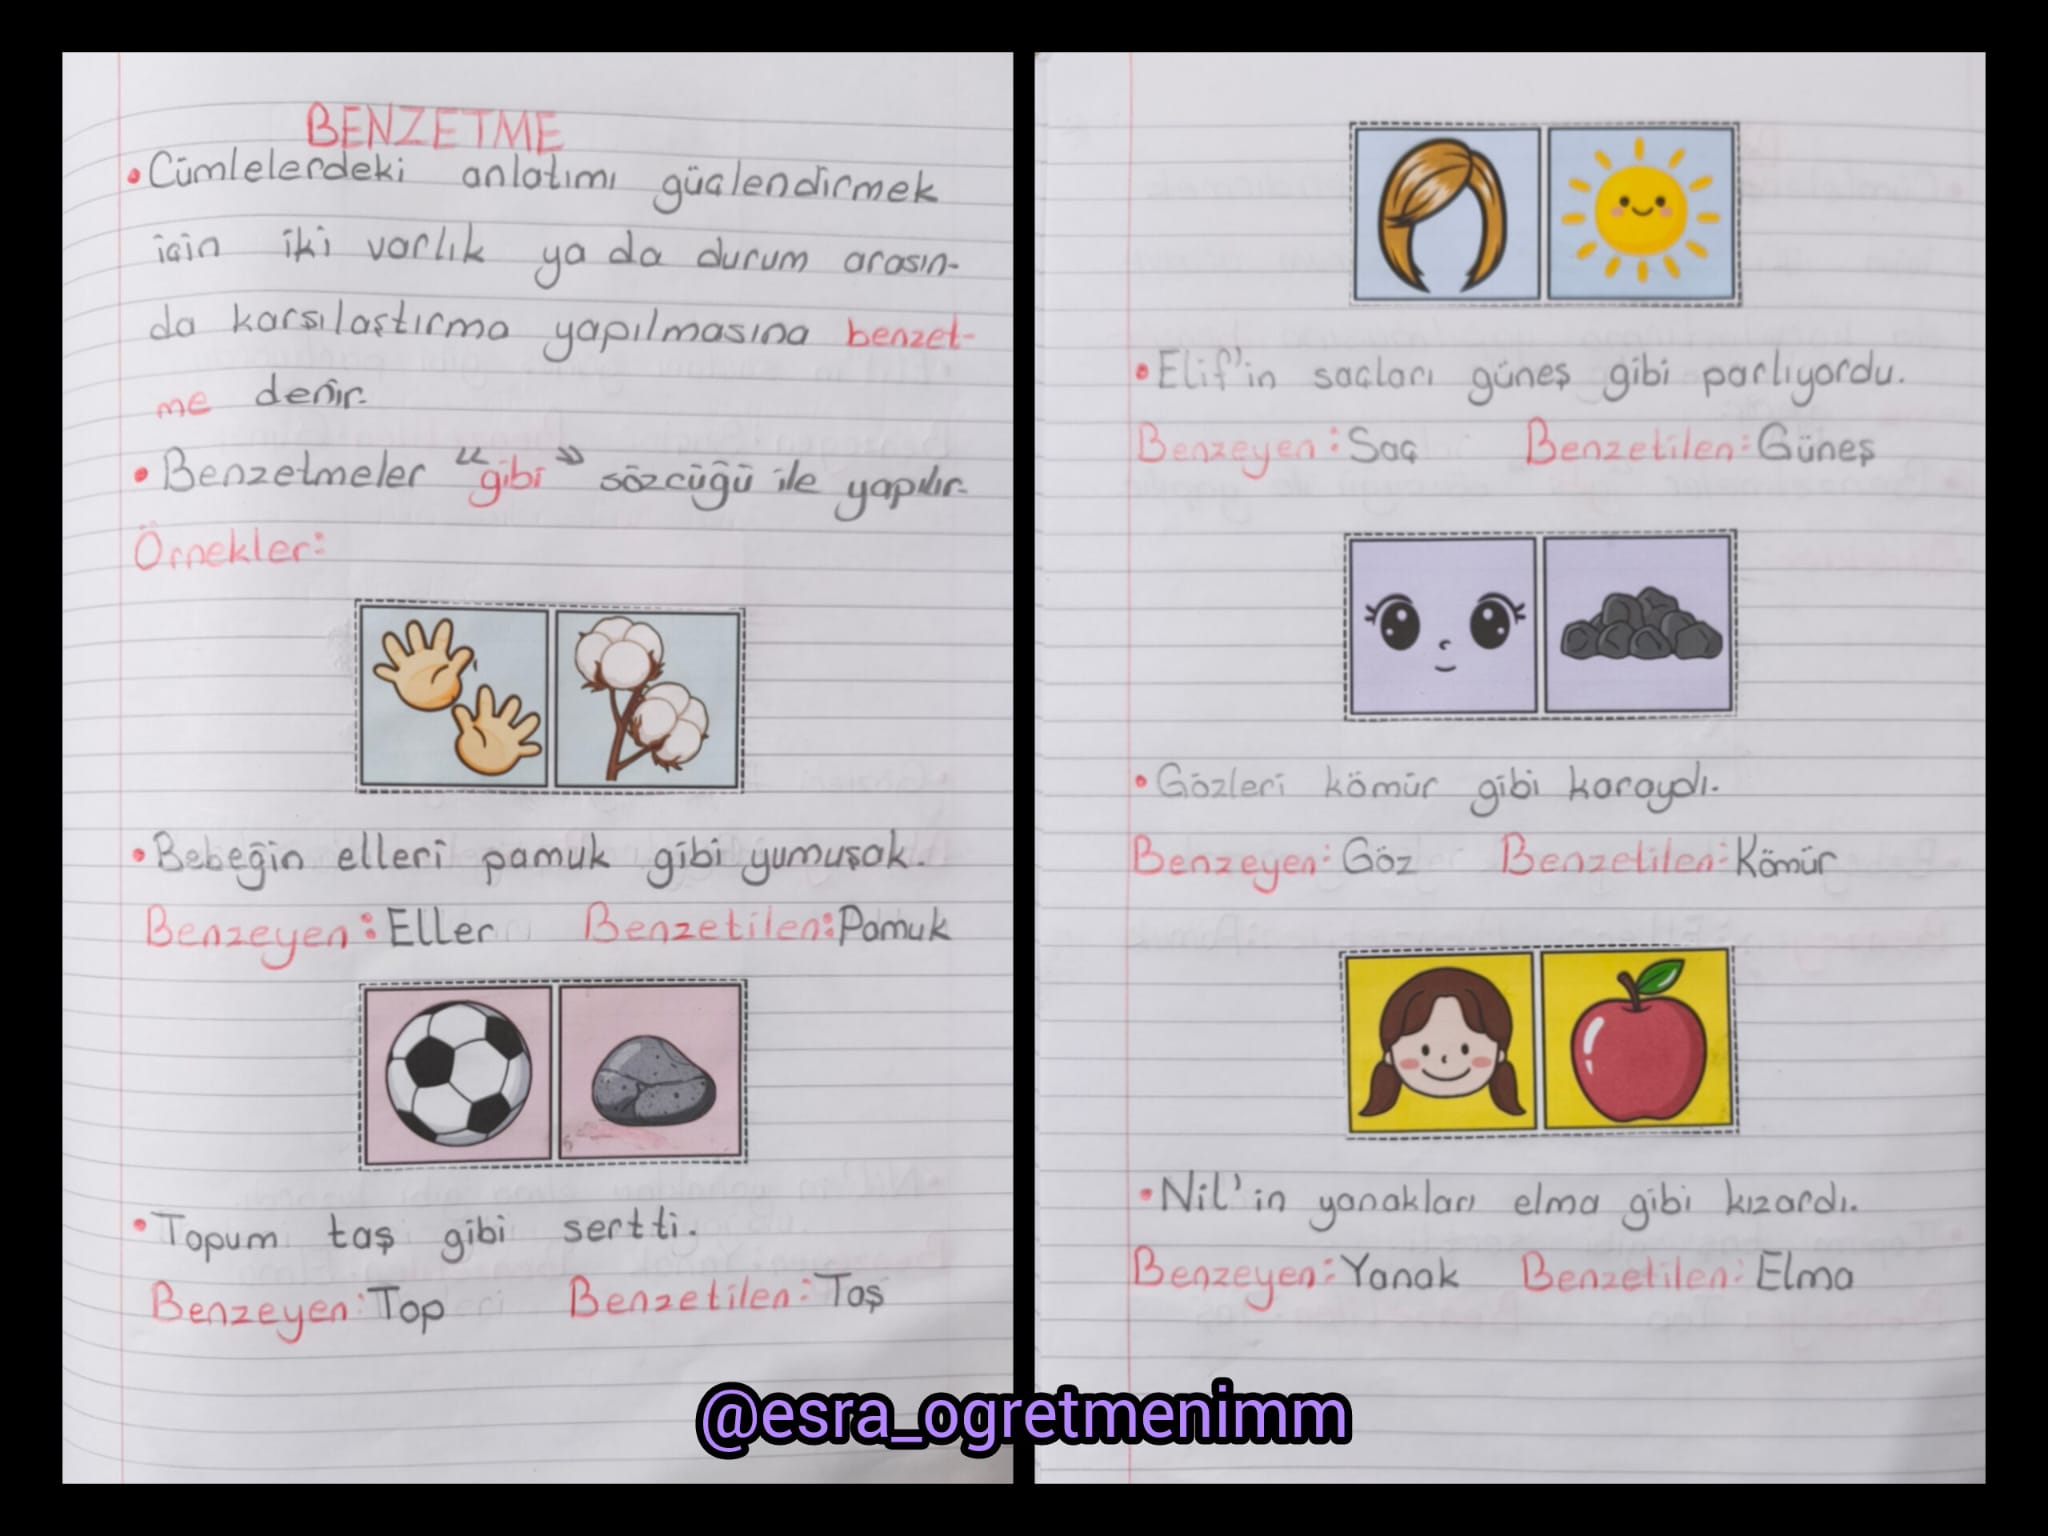 BENZETME
• Cümlelerdeki anlatımı güçlendirmek
için iki varlık ya da durum arasın-
da karşılaştırma yapılmasına benzet-
me denir.
• Benzetmeler "gibi" sözcüğü ile yapılır.
Örnekler:
• Bebeğin elleri pamuk gibi yumuşak.
Benzeyen: Eller Benzetilen: Pamuk
• Topum taş gibi sertti.
Benzeyen: Top Benzetilen: Taş
• Elif'in saçları güneş gibi parlıyordu.
Benzeyen: Saç Benzetilen: Güneş
• Gözleri kömür gibi karaydı.
Benzeyen: Göz Benzetilen: Kömür
• Nil'in yanakları elma gibi kızardı.
Benzeyen: Yanak Benzetilen: Elma
@esra_ogretmenimm